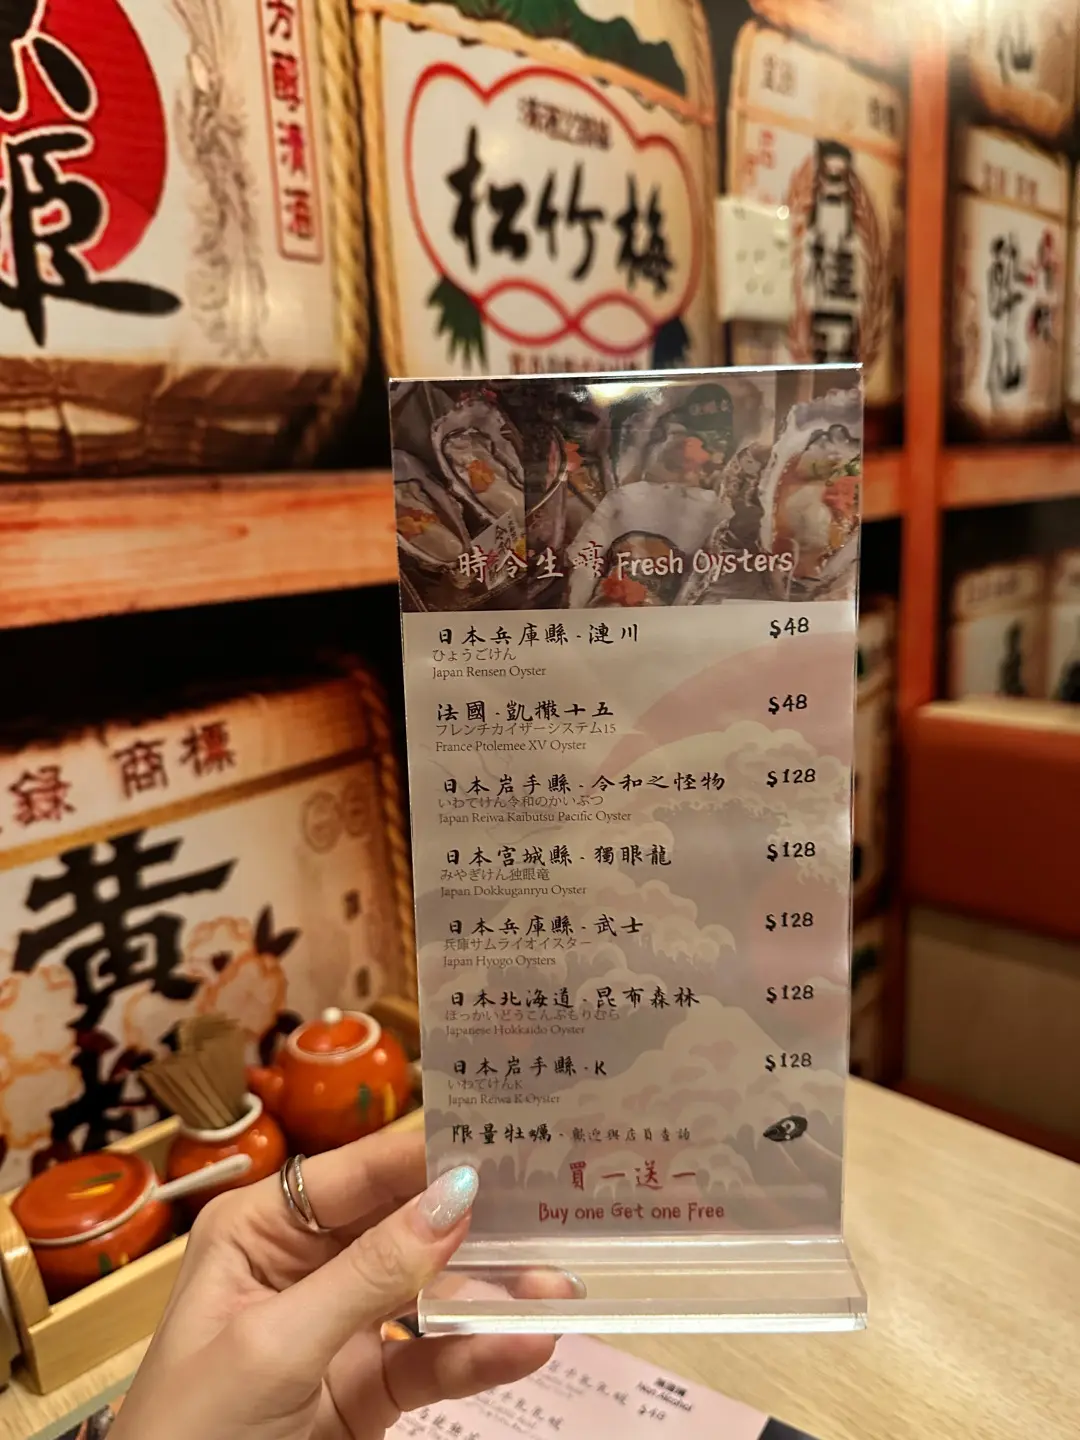 方醇清酒
姫
松竹梅
月桂冠
酔仙
仙
録商標
黄
時令生蠔 Fresh Oysters
日本兵庫縣 - 漣川 $48
ひょうごけん
Japan Rensen Oyster
法國 - 凱撒十五 $48
フレンチカイザーシステム15
France Ptolemee XV Oyster
日本岩手縣 - 令和之怪物 $128
いわてけん令和のかいぶつ
Japan Reiwa Kaibutsu Pacific Oyster
日本宮城縣 - 獨眼龍 $128
みやぎけん独眼竜
Japan Dokkuganryu Oyster
日本兵庫縣 - 武士 $128
兵庫サムライオイスター
Japan Hyogo Oysters
日本北海道 - 昆布森林 $128
ほっかいどうこんぶもりむら
Japanese Hokkaido Oyster
日本岩手縣 - K $128
いわてけんK
Japan Reiwa K Oyster
限量牡蠣 - 歡迎與店員查詢 ?
買一送一
Buy one Get one Free
$48